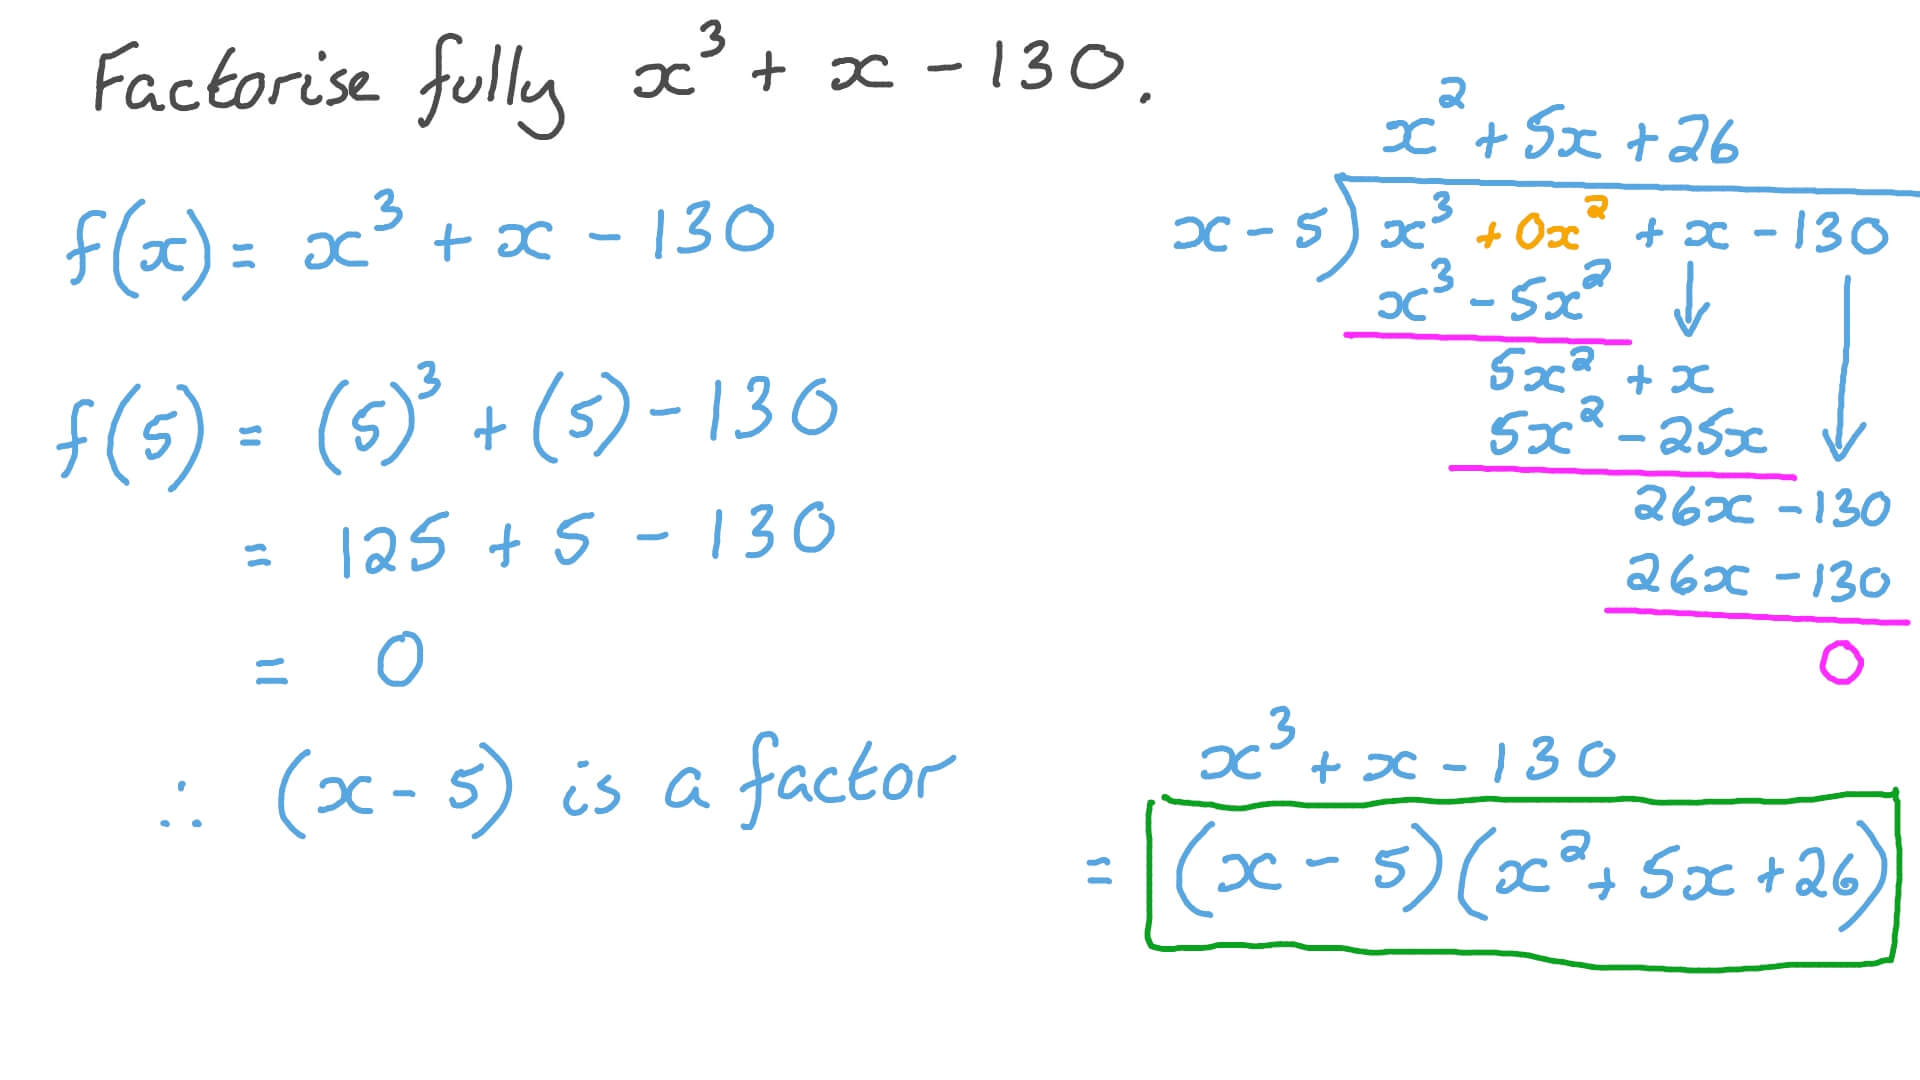 Factorise fully x³ + x - 130.
f(x) = x³ + x - 130
f(5) = (5)³ + (5) - 130
= 125 + 5 - 130
= 0
∴ (x - 5) is a factor
x² + 5x + 26
x - 5) x³ + 0x² + x - 130
x³ - 5x²
5x² + x
5x² - 25x
26x - 130
26x - 130
0
x³ + x - 130
= (x - 5)(x² + 5x + 26)